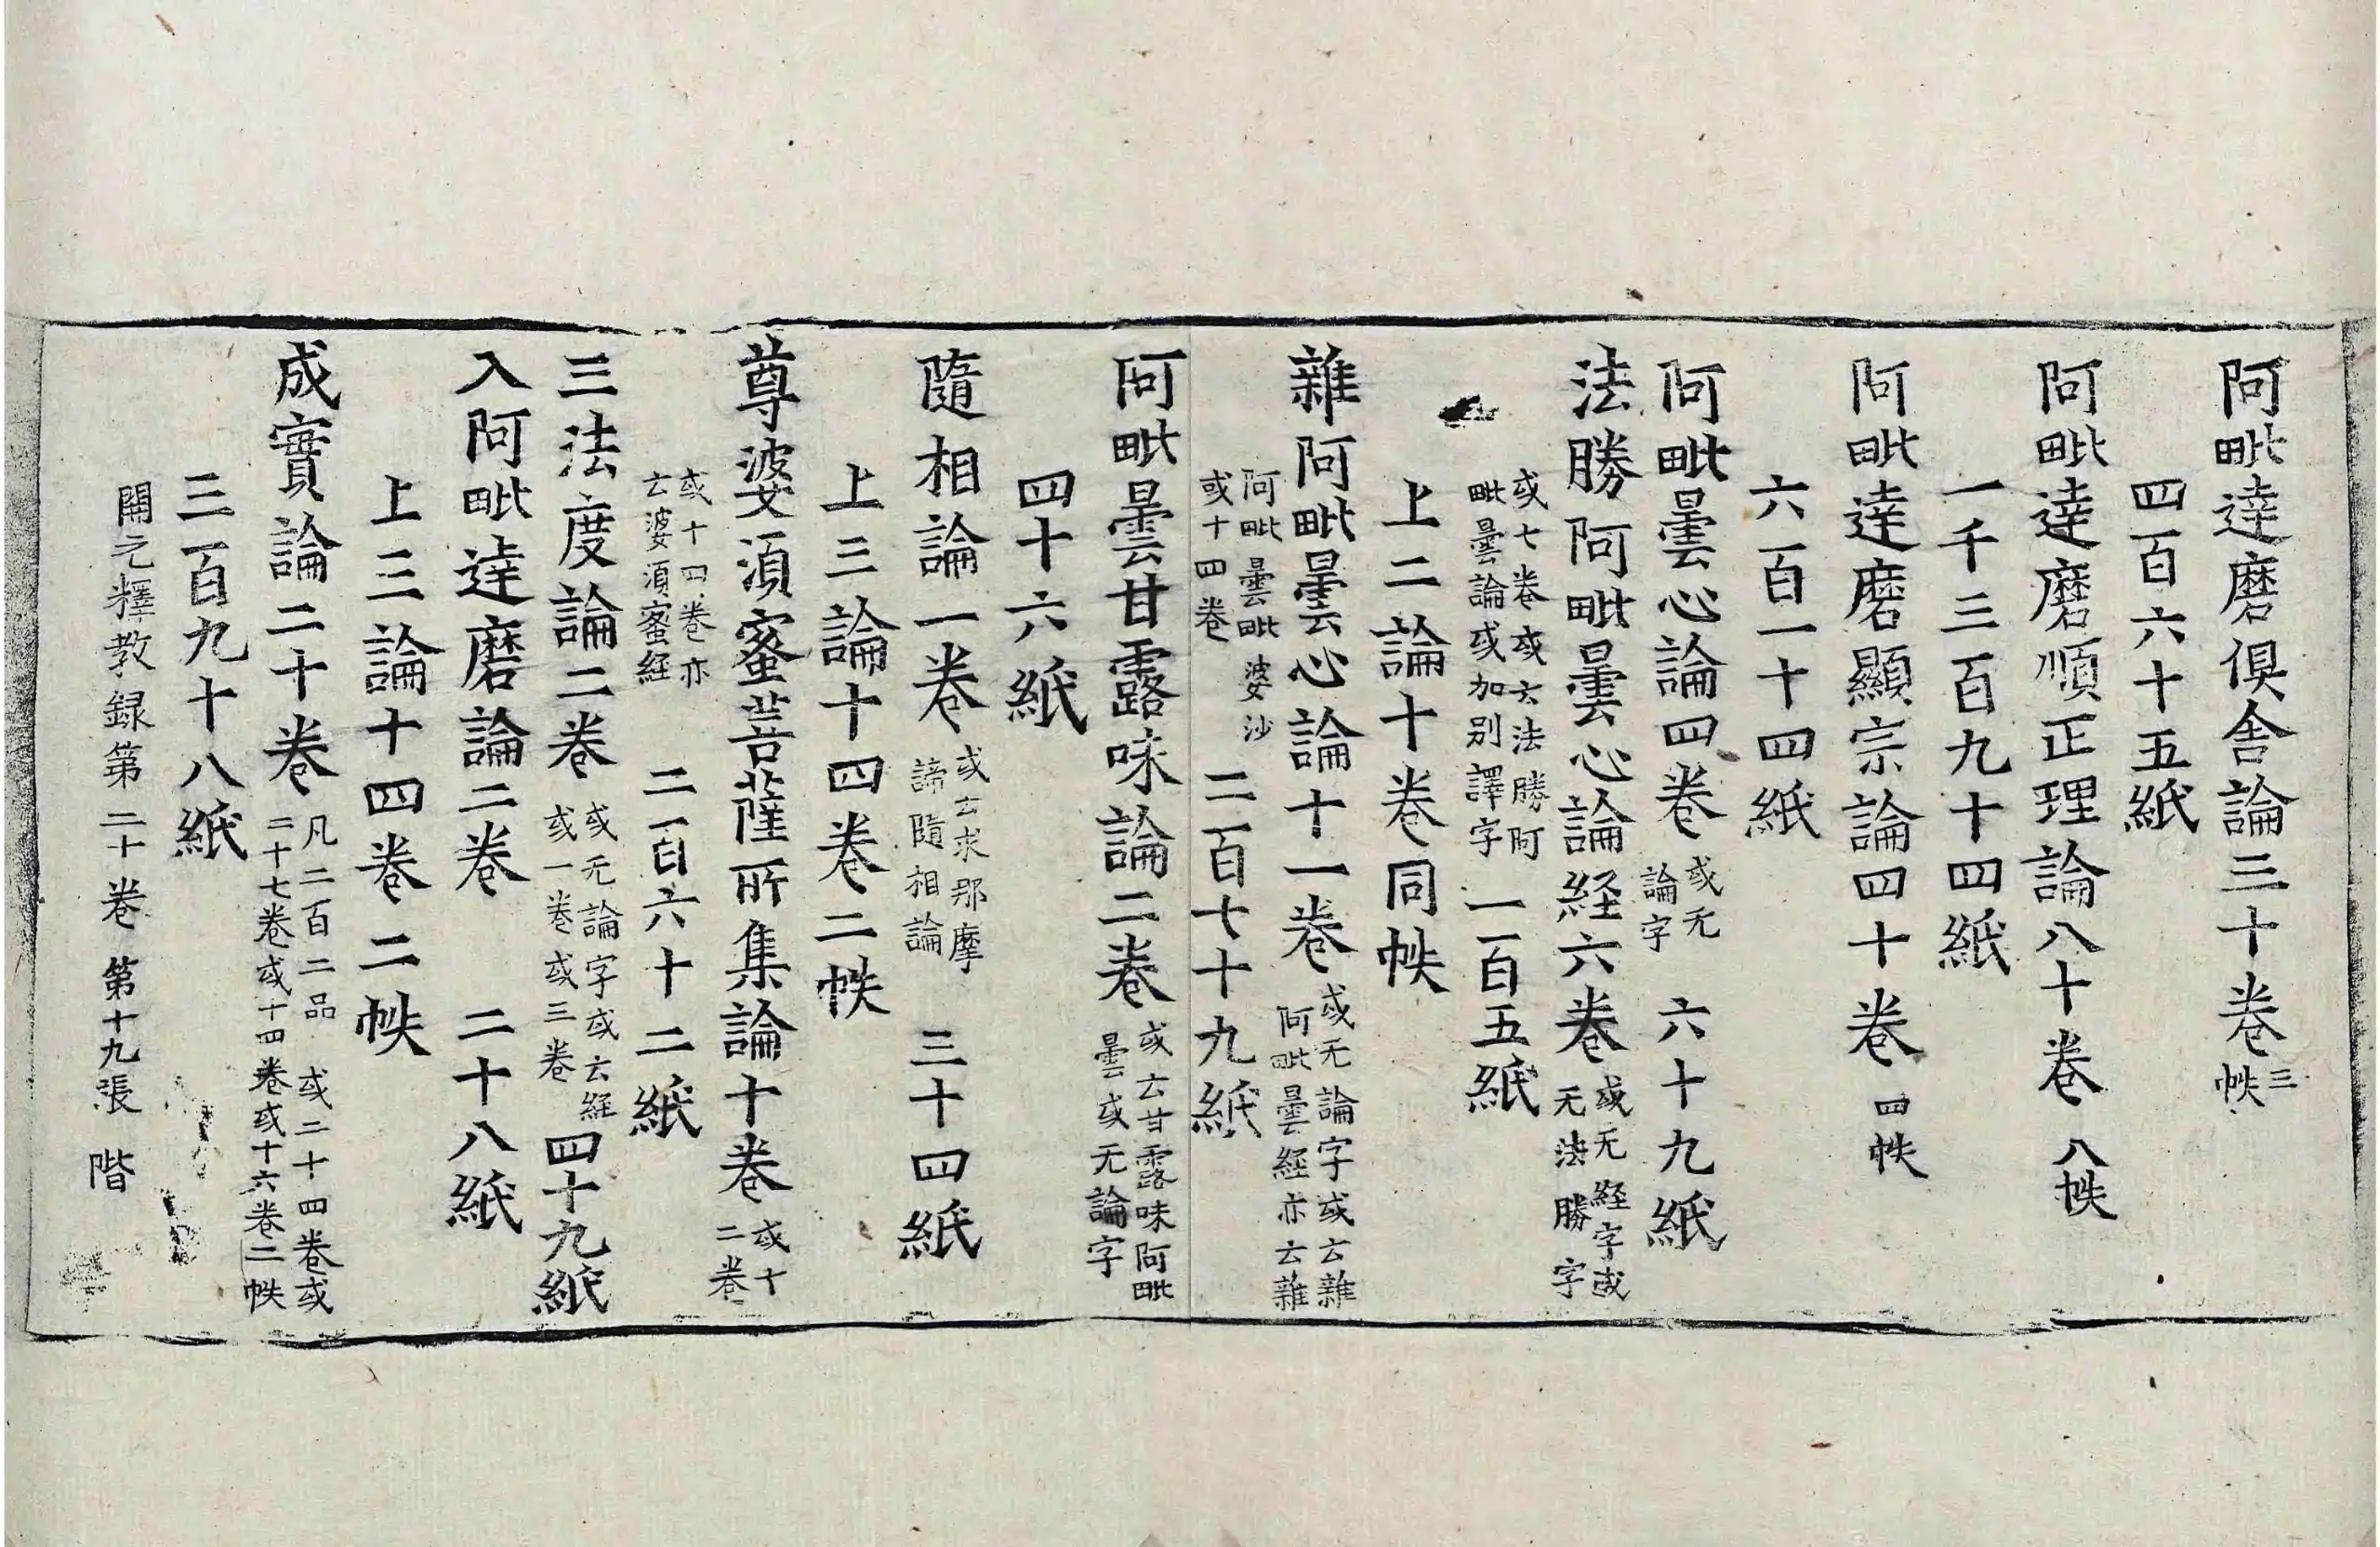 阿毗達磨俱舍論三十卷三帙
四百六十五紙
阿毗達磨順正理論八十卷八帙
一千三百九十四紙
阿毗達磨顯宗論四十卷四帙
六百一十四紙
阿毗曇心論四卷或无論字六十九紙
法勝阿毗曇心論経六卷或无経字或无法勝字
或七卷或云法勝阿毗曇論或加別譯字一百五紙
上二論十卷同帙
雜阿毗曇心論十一卷或无論字或云雜阿毗曇經亦云雜
阿毗曇毗婆沙或十四卷二百七十九紙
阿毗曇甘露味論二卷或云甘露味阿毗曇或无論字
四十六紙
隨相論一卷或云求那摩諦隨相論三十四紙
上三論十四卷二帙
尊婆須蜜菩薩所集論十卷或十二卷
或十四卷亦云婆須蜜経二百六十二紙
三法度論二卷或无論字或云経或一卷或三卷四十九紙
入阿毗達磨論二卷二十八紙
上三論十四卷二帙
成實論二十卷凡二百二品或二十四卷或二十七卷或十四卷或十六卷二帙
三百九十八紙
開元釋教録第二十卷 第十九張 階